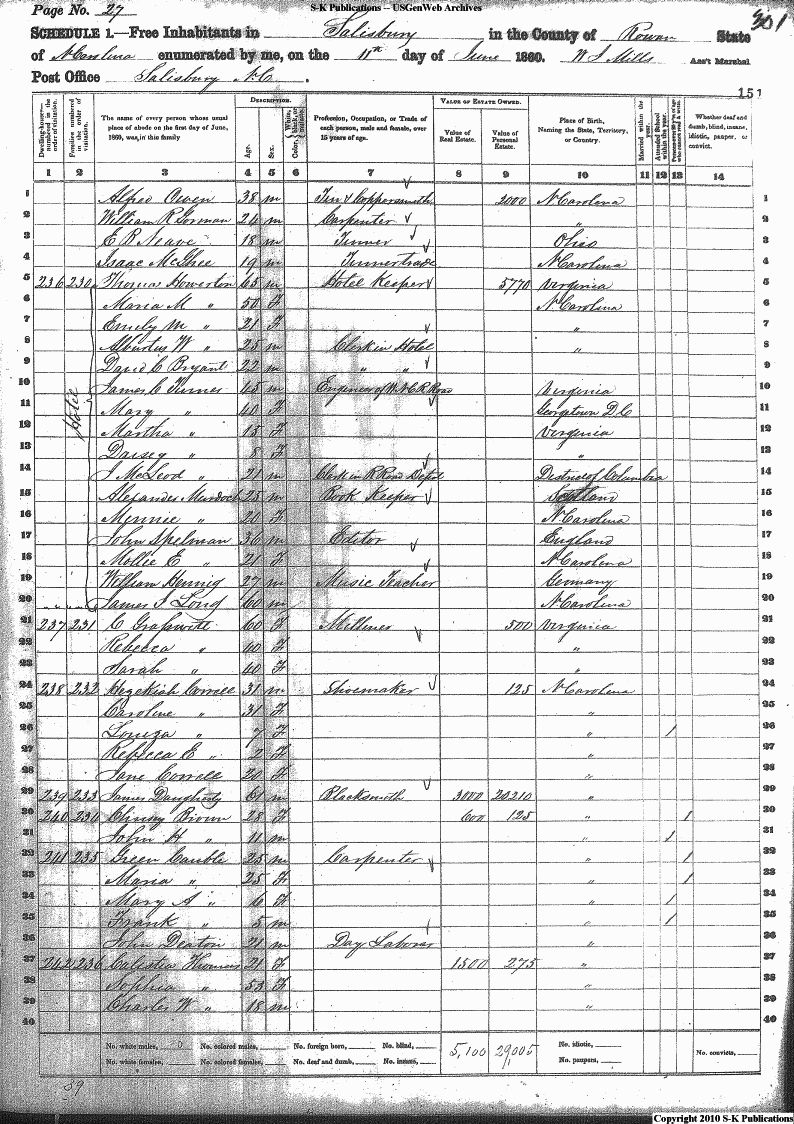 S-K Publications -- USGenWeb Archives
Page No. 27
301
SCHEDULE 1.—Free Inhabitants in Salisbury in the County of Rowan State
of N Carolina enumerated by me, on the 11th day of June 1860. W J Mills Ass't Marshal
Post Office Salisbury N.C.
151
DESCRIPTION. VALUE OF ESTATE OWNED.
The name of every person whose usual place of abode on the first day of June, 1860, was in this family
Age. Sex.
Profession, Occupation, or Trade of each person, male and female, over 15 years of age.
Value of Real Estate. Value of Personal Estate.
Place of Birth, Naming the State, Territory, or Country.
Married within the year. Attended School within the year.
Whether deaf and dumb, blind, insane, idiotic, pauper, or convict.
1 2 3 4 5 6 7 8 9 10 11 12 13 14
1 Alfred Owen 38 m Tin & Coppersmith 2000 N Carolina 1
2 William R Gorman 24 m Carpenter " 2
3 E R Neave 18 m Tinner Ohio 3
4 Isaac McGhee 19 m Tinner trade N Carolina 4
5 236 230 Thomas Howerton 65 m Hotel Keeper 5770 Virginia 5
6 Maria M " 50 F N. Carolina 6
7 Emily M " 21 F " 7
8 Albertus W " 25 m Clerk in Hotel " 8
9 David C Bryant 22 m " " 9
Hotel
10 James C Turner 45 m Engineer of W N C R Road Virginia 10
11 Mary " 40 F Georgetown D C 11
12 Martha " 15 F Virginia 12
13 Daisey " 8 F " 13
14 J McLeod " 21 m Clerk in R Road Depot District of Columbia 14
15 Alexander Murdoch 25 m Book Keeper Scotland 15
16 Mennie " 20 F N Carolina 16
17 John Spelman 36 m Editor England 17
18 Mollie E " 21 F N Carolina 18
19 William Hennig 27 m Music Teacher Germany 19
20 James I Long 60 m N Carolina 20
21 237 231 C 60 F Milliner 500 Virginia 21
22 Rebecca " 40 F " 22
23 Sarah " 40 F " 23
24 238 232 Hezekiah Correll 31 m Shoemaker 125 N Carolina 24
25 Caroline " 31 F " 25
26 Louiza " 7 F " 1 26
27 Rebecca E " 2 F " 27
28 Jane Correll 20 F " 28
29 239 233 James Daugherty 61 m Blacksmith 3000 20210 " 29
30 240 234 Brown 28 F 600 125 " 1 30
31 John H " 11 m " 1 31
32 241 235 Green Cauble 25 m Carpenter " 1 32
33 Maria " 25 F " 1 33
34 Mary A " 6 F " 1 34
35 Frank " 5 m " 1 35
36 John Deaton 21 m Day Laborer " 36
37 242 236 Celestia Thomas 21 F 1500 275 " 37
38 Sophia " 53 F " 38
39 Charles W " 18 m " 39
40 40
No. white males, No. colored males, No. foreign born, No. blind, 5,100 29,005 No. idiotic, No. convicts,
No. white females, No. colored females, No. deaf and dumb, No. insane, No. paupers,
89
Copyright 2010 S-K Publications